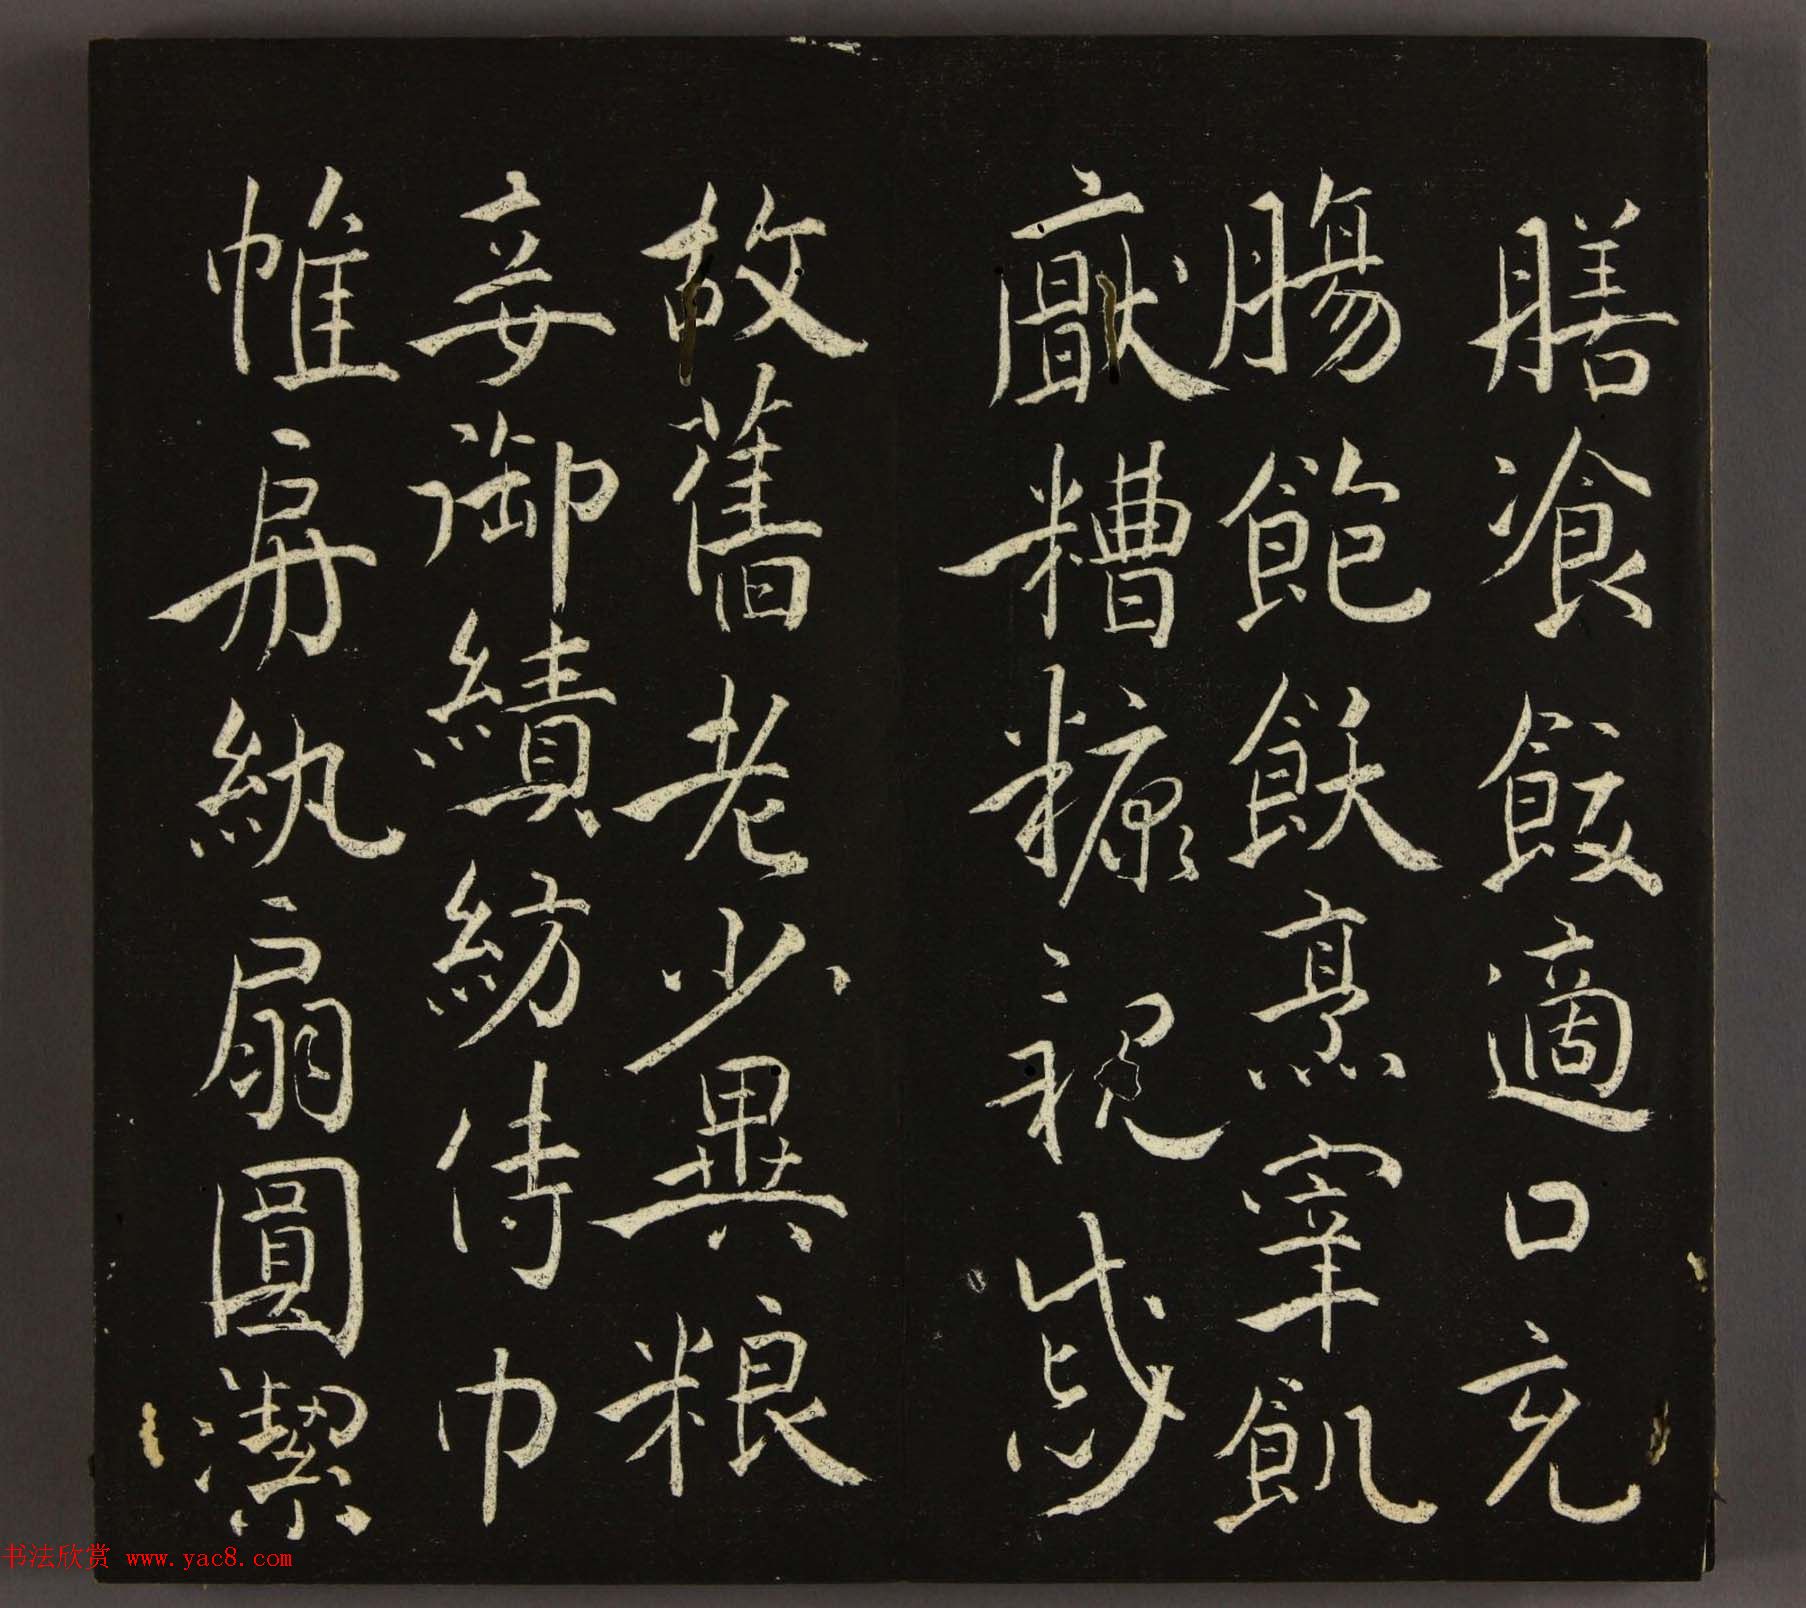 膳飡飯適口充
腸飽飫烹宰飢
厭糟糠親戚
故舊老少異粮
妾御績紡侍巾
帷房紈扇圓潔
书法欣赏 www.yac8.com